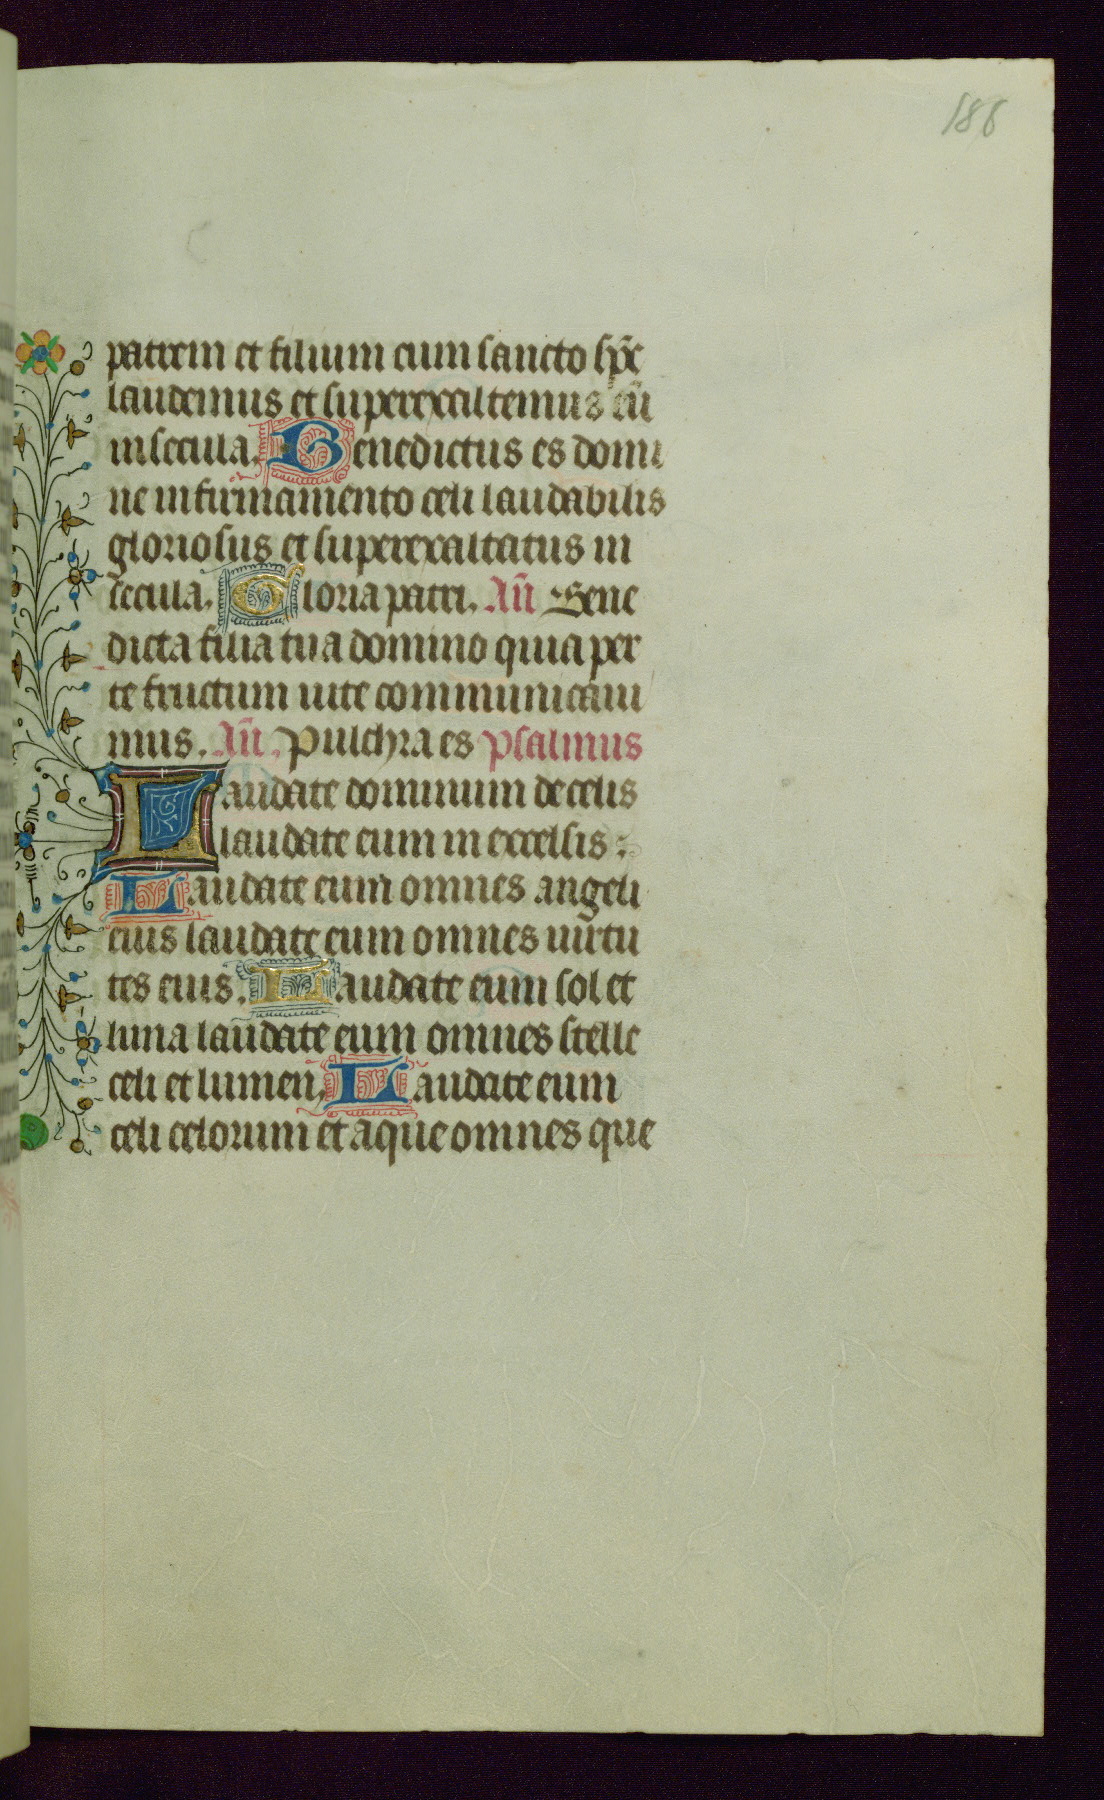 186
patrem et filium cum sancto spc̄
laudemus et superexaltemus eū
in secula. Benedictus es domi
ne in firmamento celi laudabilis
gloriosus et superexaltatus in
secula. Gloria patri. An̄ Bene
dicta filia tua domino quia per
te fructum vite communicavi
mus. An̄. Pulchra es psalmus
Laudate dominum de celis
laudate eum in excelsis :
Laudate eum omnes angeli
eius laudate eum omnes virtu
tes eius. Laudate eum sol et
luna laudate eum omnes stelle
celi et lumen. Laudate eum
celi celorum et aque omnes que